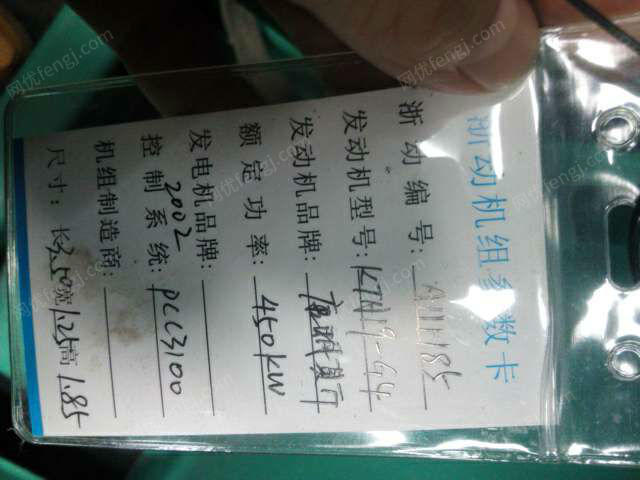 浙动机组参数卡
浙动编号:
发动机型号:KTA19-G4
发动机品牌:康明斯
额定功率:450KW
发电机品牌:
2002
控制系统:PCC3100
机组制造商:
尺寸:长3.50宽1.25高1.85
网优fengj.com